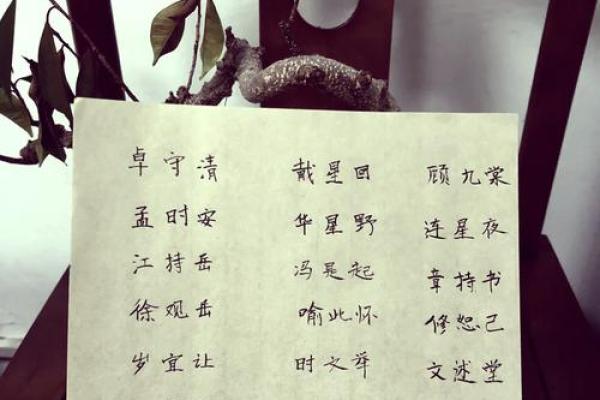 卓守清 戴星回 顾九棠
孟时安 华星野 连星夜
江持岳 冯晃起 章持书
徐观岳 喻此怀 修恕己
岁宜让 时之举 文述堂